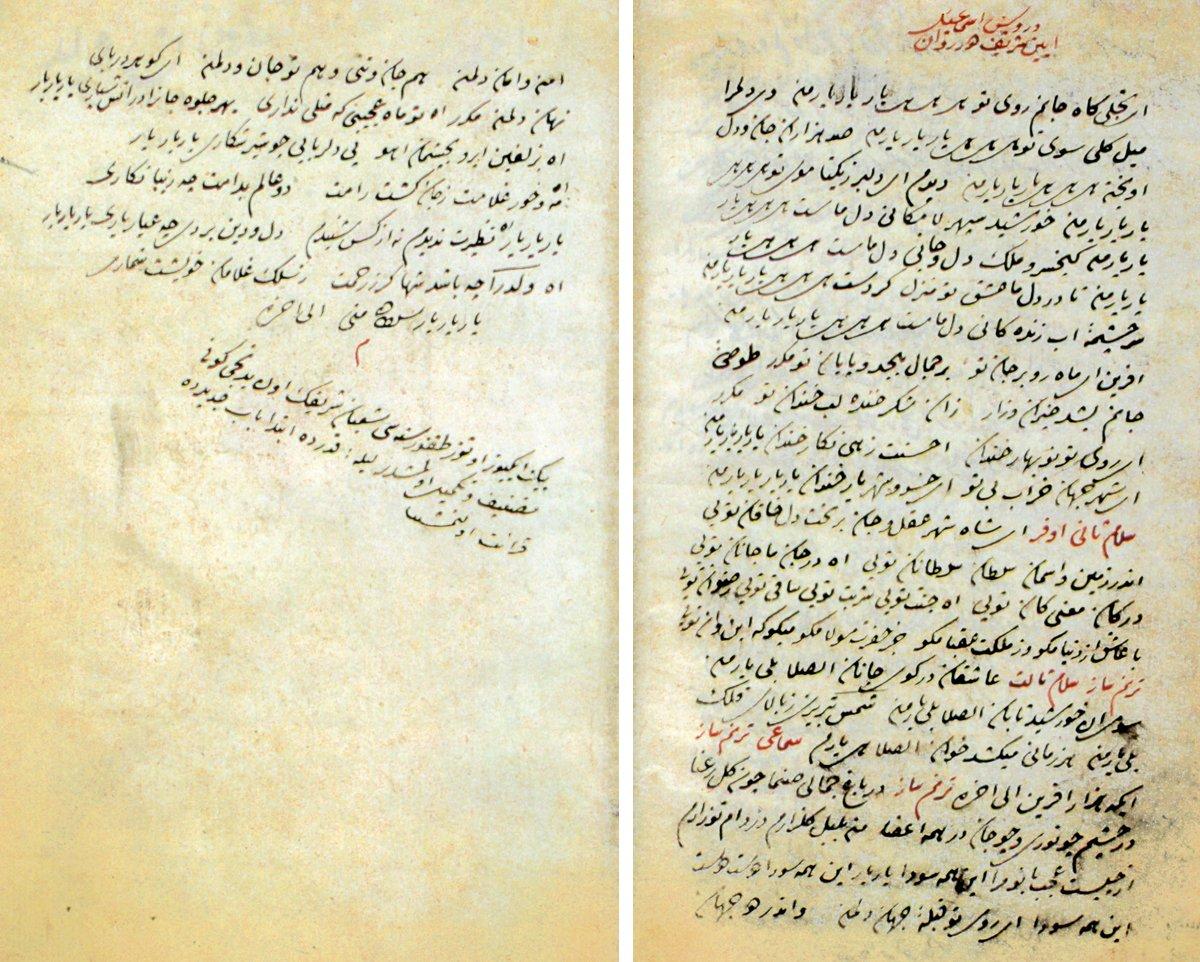 درویش اسماعیل
آیین شریف در روان
ای تجلی کاه جانم روی تو هی هی هی هی یار یار یارمن وی دلمرا
میل کلی سوی تو هی هی هی یار یار یارمن صد هزاران جان و دل
اویخته هی هی هی یار یار یارمن دیدم ای دلبر زیکتا موی تو هی هی هی
یار یار یارمن خورشید سپهر لامکانی دل ماست هی هی هی یار
یار یارمن کیخسرو ملک دل و جانی دل ماست هی هی هی یار
یار یارمن تا در دل ما عشق تو منزل کردست هی هی هی یار یار یارمن
سرچشمه اب زنده کانی دل ماست هی هی هی یار یار یارمن
افرین ای ماه رو بر جان تو بر جمال بیحد و پایان تو مکرر طوطی
جانم بشد حیران و زار زان شکر خنده لب خندان تو مکرر
ای روی تو نوبهار خندان احسنت زهی نکار خندان یار یار یار یارمن
ای شهر جهان خراب بی تو ای خسرو شهریار خندان یار یار یار یارمن
سلام ثانی اوفر ای شاه شهر عقل و جان بر تخت دل خاقان تویی
اندر زمین و اسمان سلطان سلطانان تویی اه در جان ما جانان تویی
در کان معنی کان تویی اه جنت تویی شربت تویی ساقی تویی رضوان تویی
با عاشق از دنیا مکو وز ملکت عقبا مکو جز حضرت مولا مکو میکو که این و ان تویی
ترنم ساز سلام ثالث عاشقان در کوی جانان الصلا بلی یارمن
سوی ان خورشید تابان الصلا بلی یارمن شمس تبریزی ز بالای فلک
بلی یارمن هر زمانی میکشد خوان الصلا هی یارم سماعی ترنم ساز
ایکه هزار افرین الی اخره ترنم ساز در باغ جمالی صنما چون کل رعنا
در چشم چو نوری و چو جان در همه اعضا من بلبل کلزارم و در دام تو زارم
از چیست عجب با تو مرا این همه سودا یار یار این همه سودا دوست دوست
این همه سودا ای روی تو قبلۀ جهان دلمن واندر دو جهان
امن و امان دلمن هم جان و تنی و هم تو جان و دلمن ای کوهر دریایی
نهان دلمن مکرر اه تو ماه عجیبی که مثلی نداری بهر جلوه جانرا در اتش یار یار یار
اه بزلفین ابرو بچشمان اهو پی دلربایی چو شیر شکاری یار یار یار
اه مه و خور غلامت ز جان کشت رامت دو عالم بدامت چه زیبا نکاری
یار یار یار اه نظیرت ندیدم نه از کس شنیدم دل و دین بردی چه عیار یاری یار یار یار
اه ولدرا چه باشد شها کر ز رحمت ز سلک غلامان خویشت شماری
یار یار یار سلطان منی الی اخره
م
بیک ایکیوز اوتوز طقوز سنه سی شعبان شریفک اون بدنجی کونی
تصنیف و تکمیل اولمشدر لیلۀ قدرده ابتدا باب جدیدده
قرائت اولنمشدر